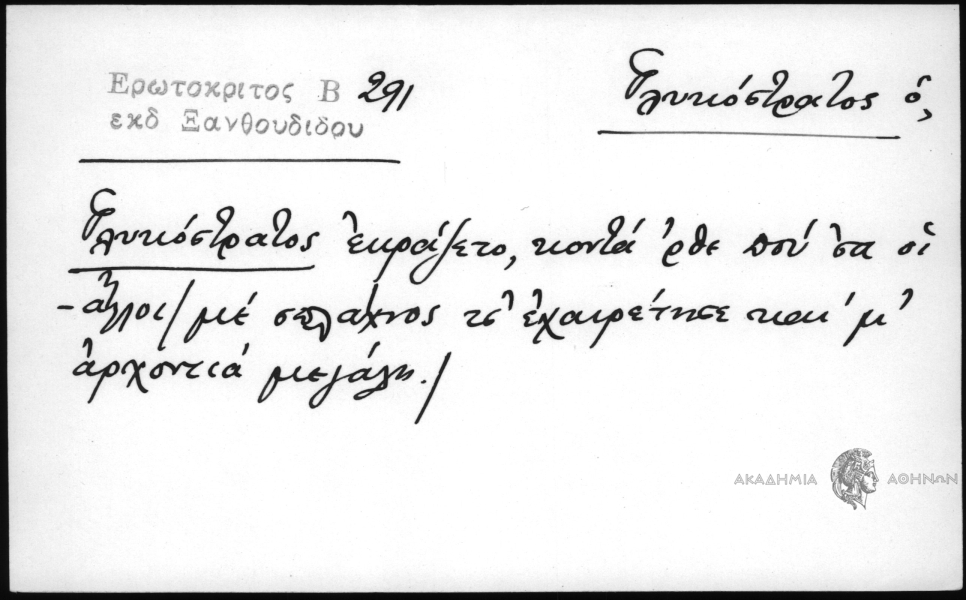 Ερωτοκριτος Β 291
εκδ Ξανθουδιδου
Γλυκόστρατος ὁ,
Γλυκόστρατος ἐκράζετο, κοντά ἦρθε πού 'σα οἱ
- ἄλλοι / μέ σπλάχνος τσ' ἐχαιρέτησε και μ'
ἀρχοντιά μεγάλη. /
ΑΚΑΔΗΜΙΑ ΑΘΗΝΩΝ